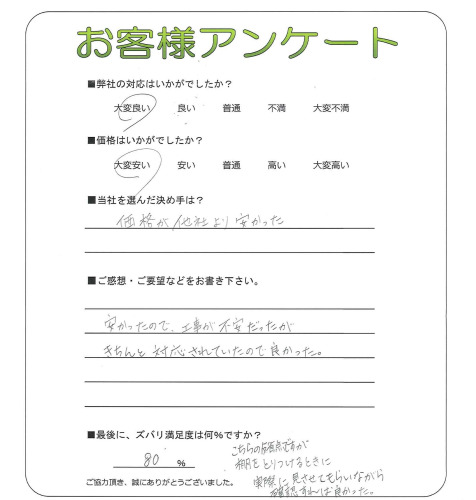 お客様アンケート
■弊社の対応はいかがでしたか？
大変良い 良い 普通 不満 大変不満
■価格はいかがでしたか？
大変安い 安い 普通 高い 大変高い
■当社を選んだ決め手は？
価格が他社より安かった
■ご感想・ご要望などをお書き下さい。
安かったので、工事が不安だったが
きちんと対応されていたので良かった。
■最後に、ズバリ満足度は何%ですか？
80 %
こちらの反省点ですが
網をとりつけるときに
実際に見させてもらいながら
確認すれば良かった。
ご協力頂き、誠にありがとうございました。